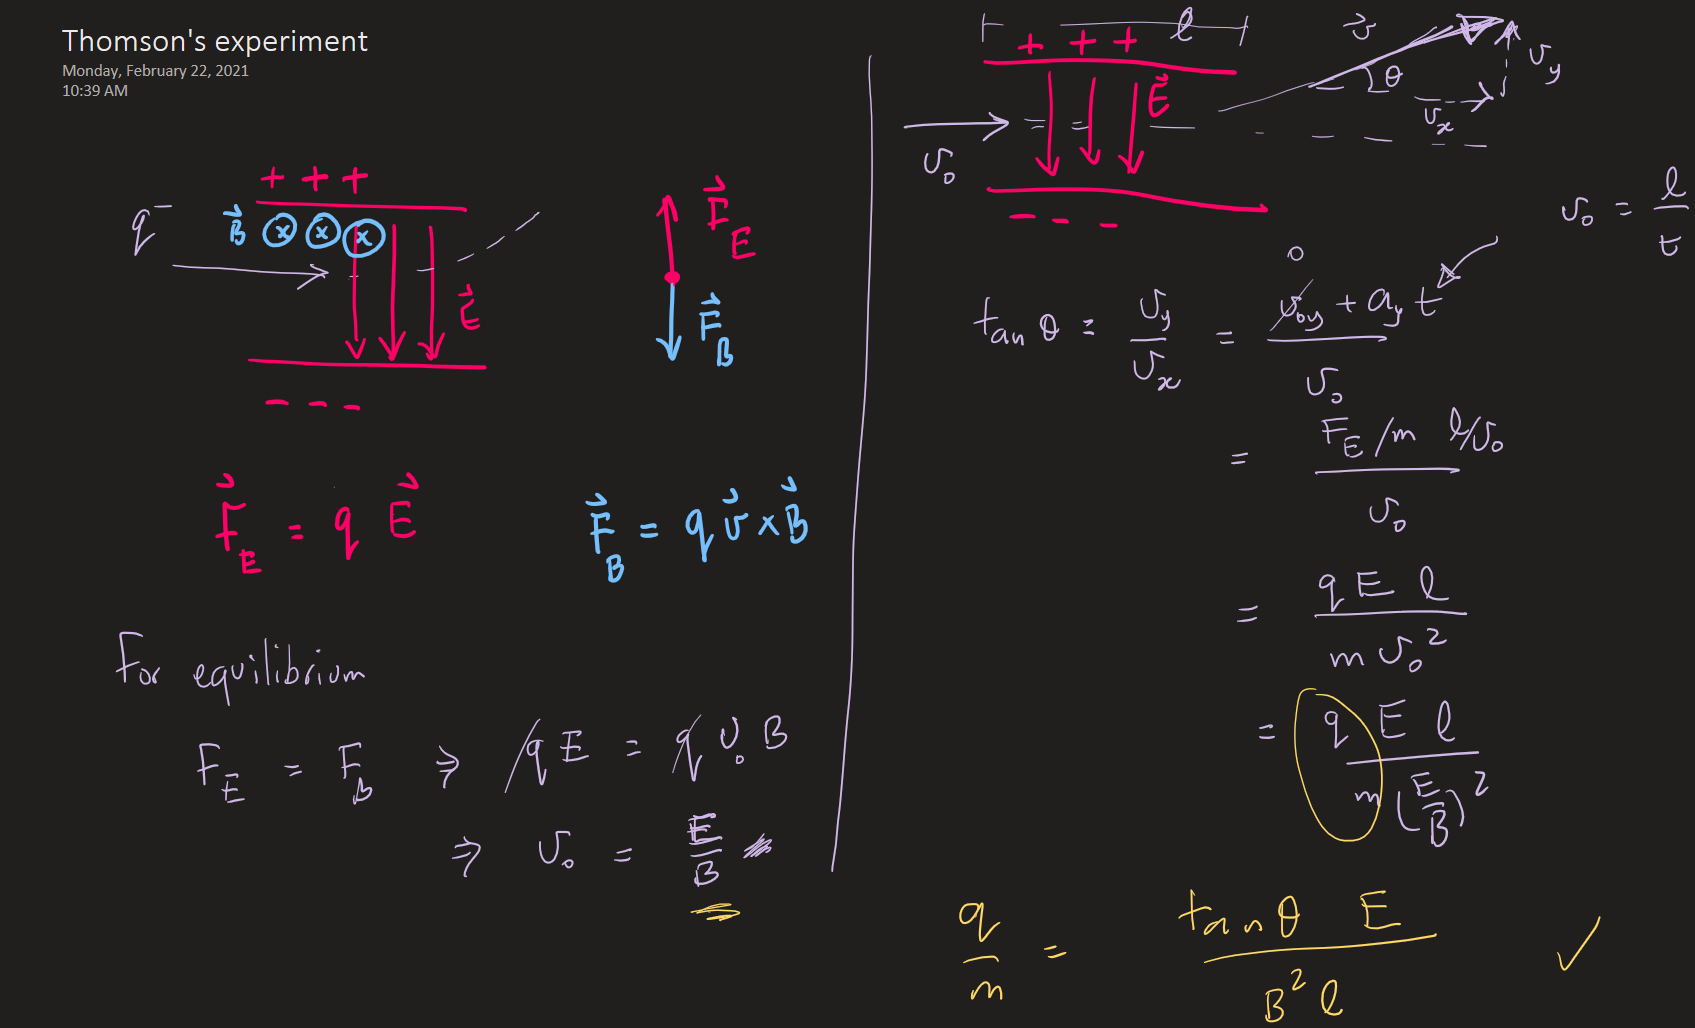 Thomson's experiment
Monday, February 22, 2021
10:39 AM
+ + +
q⁻
B⃗ ⊗ ⊗ ⊗
E⃗
- - -
F⃗_E
F⃗_B
F⃗_E = q E⃗
F⃗_B = q v⃗ × B⃗
For equilibrium
F_E = F_B ⇒ qE = q v₀ B
⇒ v₀ = E/B
l
+ + +
E⃗
v₀
- - -
v⃗
θ
v_x
v_y
v₀ = l/t
0
tan θ = v_y/v_x = (v_oy + a_y t)/v₀
= (F_E/m l/v₀)/v₀
= qEl/(m v₀²)
= qEl/(m (E/B)²)
q/m = tan θ E/(B² l) ✓